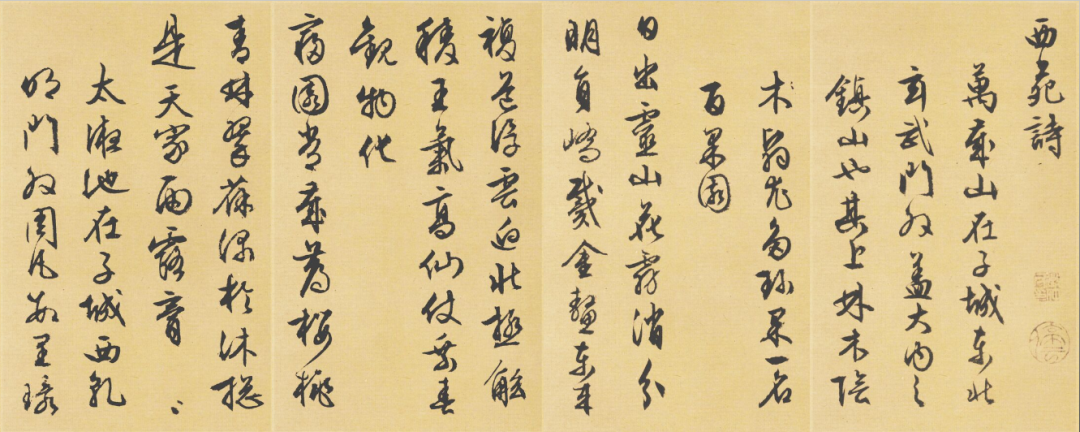 西苑詩
萬歲山在子城東北
玄武門外蓋大內之
鎮山也其上林木陰
翳尤多珍果一名
百果園
日出靈山花霧消分
明員嶠戴金鰲東來
複道浮雲迥北極觚
稜王氣高仙仗乘春
觀物化
寢園常歲薦櫻桃
青林翠葆深於沐揔
是天家雨露膏
太液池在子城西乾
明門外周凡數里環